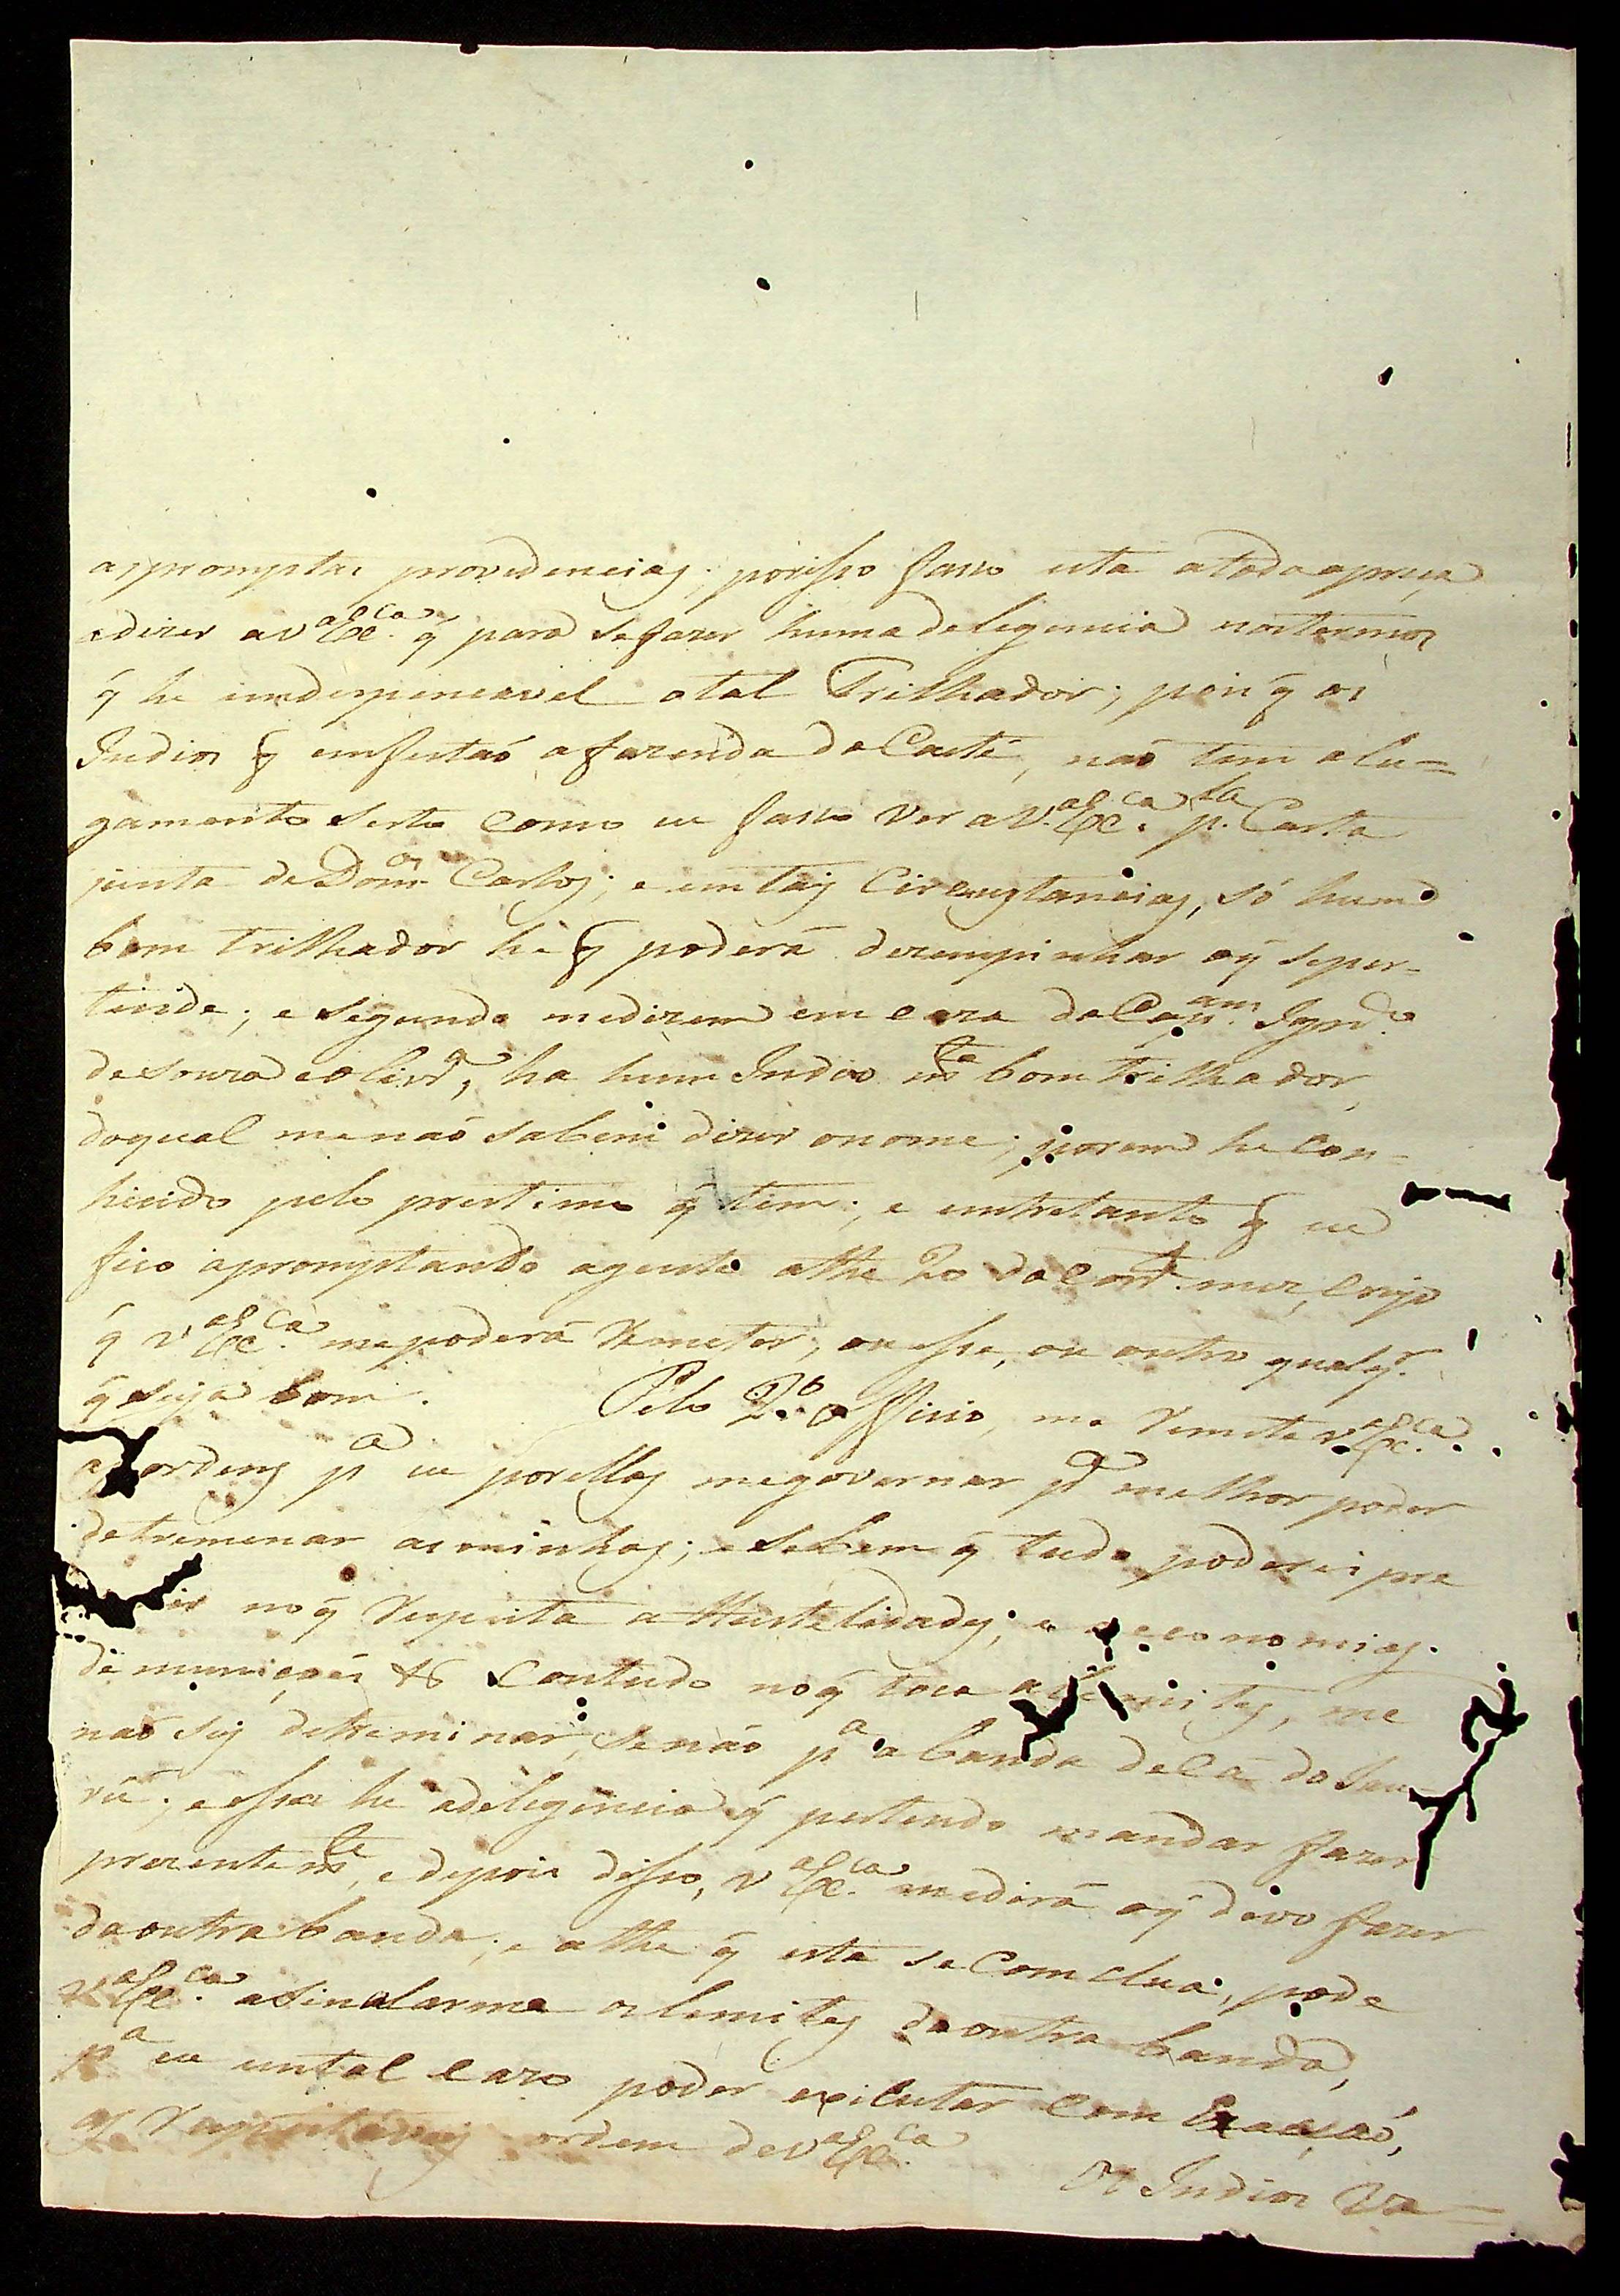 as promptas providencias; porisso fasso esta atoda apreça
edizer a v.ª Ex.ca q̃ para sefazer huma deligencia nostermos
q̃ he indispensavel o tal Trilhador; pois q̃ os
Indios q̃ emfestaõ a fazenda do Caité, naõ tem alu=
gamento serto como eu fasso ver a V.ª Ex.ca p.la Carta
junta de Dom.os Carlos; e em tais Circunstancias, só hum
bom trilhador he q̃ poderá dezempinhar oq̃ seper-
tende; e segundo medizem em caza do Cap.am Ign.do
de Souza eoliv.ra, ha hum Indio m.to bom trilhador,
doqual menaõ sabem dizer onome; porem he con-
hecido pelo prestimo q̃ tem; e entretanto q̃ eu
fico apromptando agente athe 20 do corr.e mez, creyo
q̃ v.ª Ex.ca mepoderá Remeter, ou esse, ou outro qualq.r
q̃ seija bom. Pelo 2.º officio, me Remete v.ª Ex.ca
as ordens p.ª eu porellas megovernar p.ª melhor poder
detremenar asminhas; e sebem q̃ tudo poderei pre
nir noq̃ Respeita a Hustelidades; e economias
de muniçoés &ª Contudo noq̃ toca alimites, me
naõ sej detreminar, senaõ p.ª abanda delá do Jucu-
rú; eessa he adeligencia q̃ pertendo mandar fazer
prezentem.te, edepois disso, v.ª Ex.ca medirá oq̃ devo fazer
da outra banda; e athe q̃ esta se comclua, pode
v.ª Ex.ca asinalarme os limites daoutra banda,
p.ª eu emtal cazo poder exicutar com Exacçaõ,
as Respeitaveis ordem de v.ª Ex.ca Os Indios Va=